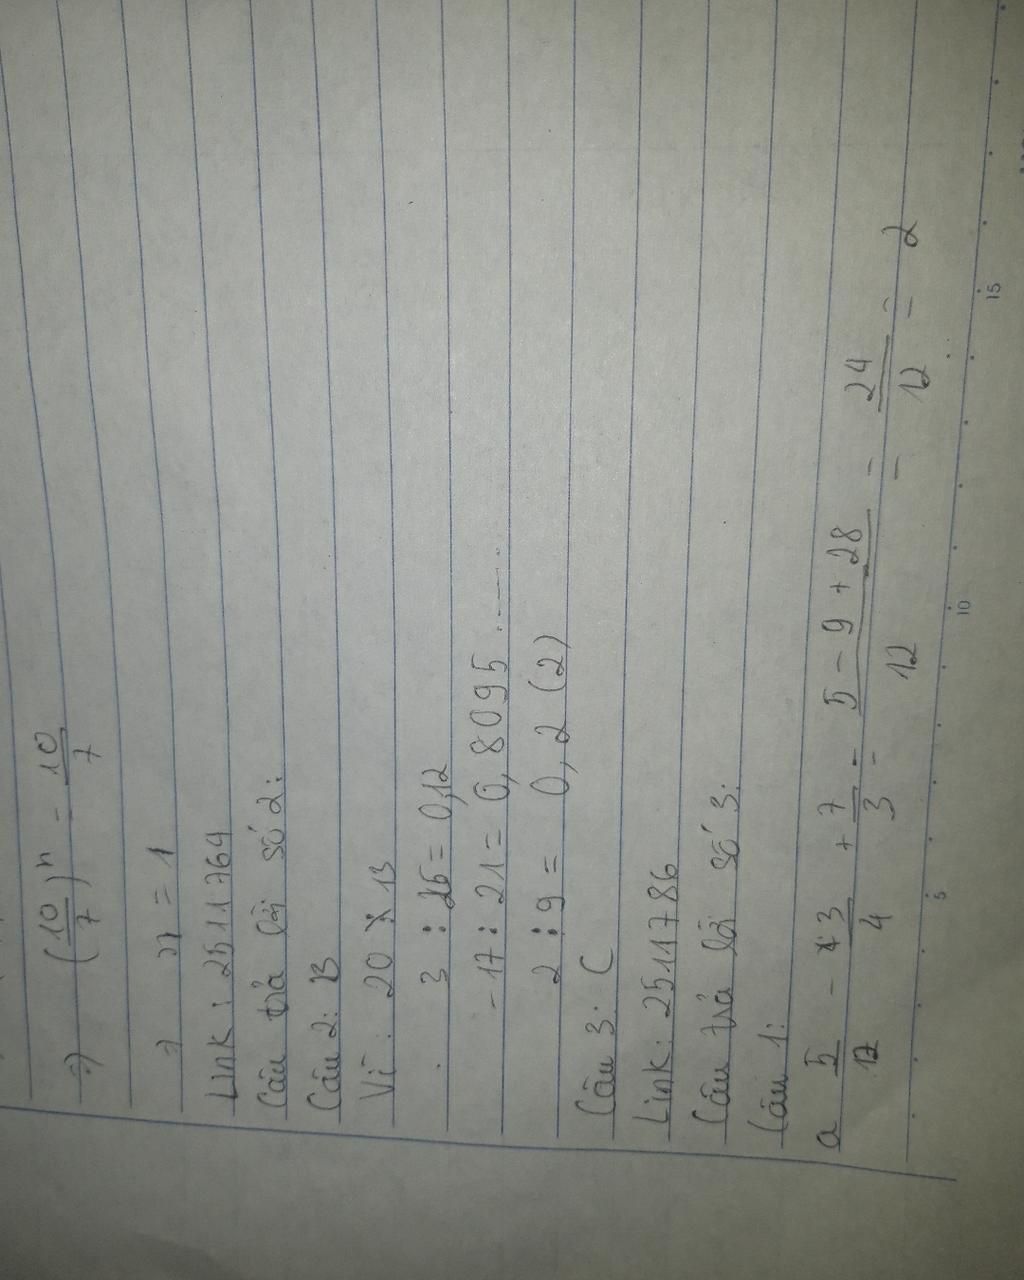 =) (10/7)^n = 10/7
=) n = 1
Link: 25111764
Câu trả lời số 2:
Câu 2: B
Vì: 20 : 13
3 : 25 = 0,12
-17 : 21 = 0,8095.....
2 : 9 = 0,2 (2)
Câu 3: C
Link: 25111786
Câu trả lời số 3:
Câu 1:
a 5/12 - 3/4 + 7/3 = 5 - 9 + 28/12 = 24/12 = 2
5 10 15